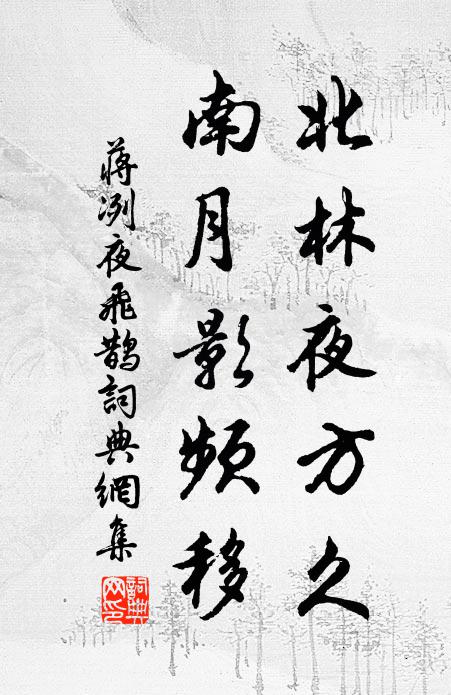 北林夜方久
南月影頻移
蔣冽夜飛鵲詞典網集
詞典
网印